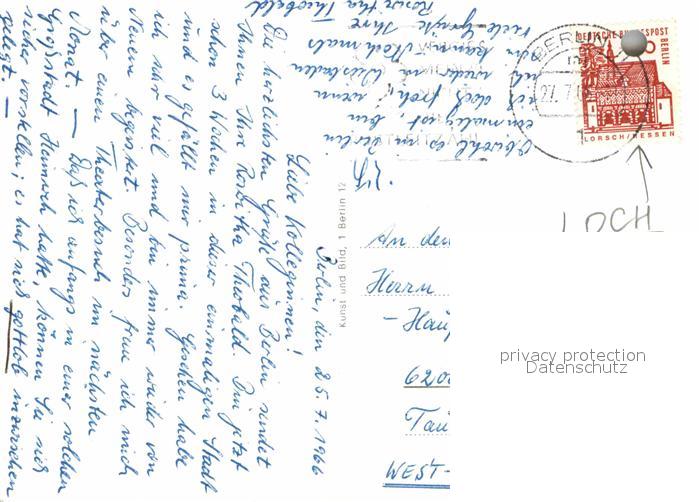 Berlin, den 25.7.1966
Liebe Kolleginnen!
Die herzlichsten Grüße aus Berlin sendet
Ihnen Ihre Rosvitha Theobald. Bin jetzt
schon 3 Wochen in dieser einmaligen Stadt
und es gefällt mir prima. Gesehen habe
ich sehr viel und bin immer wieder von
Neuem begeistert. Besonders freue ich mich
über einen Theaterbesuch im nächsten
Monat. — Daß ich anfangs in einer solchen
Großstadt Heimweh hatte, können Sie sich
sicher vorstellen; es hat sich gottlob inzwischen
gelegt. —
Obwohl es in Berlin
einmalig ist, bin
ich doch froh, wenn
ich wieder in Wiesbaden
sein kann. Nochmals
viele Grüße Ihre
Theobald
Kunst und Bild, 1 Berlin 12
DEUTSCHE BUNDESPOST
BERLIN
LORSCH/HESSEN
BERLIN
27.7.
LOCH
An den
Herrn
- Hau
620
Tau
WEST-
privacy protection
Datenschutz